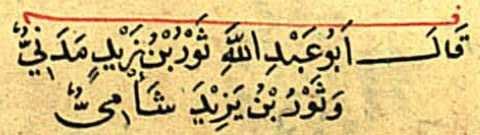 قَالَ اَبُو عَبْدِ اللّٰهِ ثَوْرُ بْنُ زَيْدٍ مَدَنِيٌّ
وَثَوْرُ بْنُ يَزِيْدَ شَأْمِيٌّ